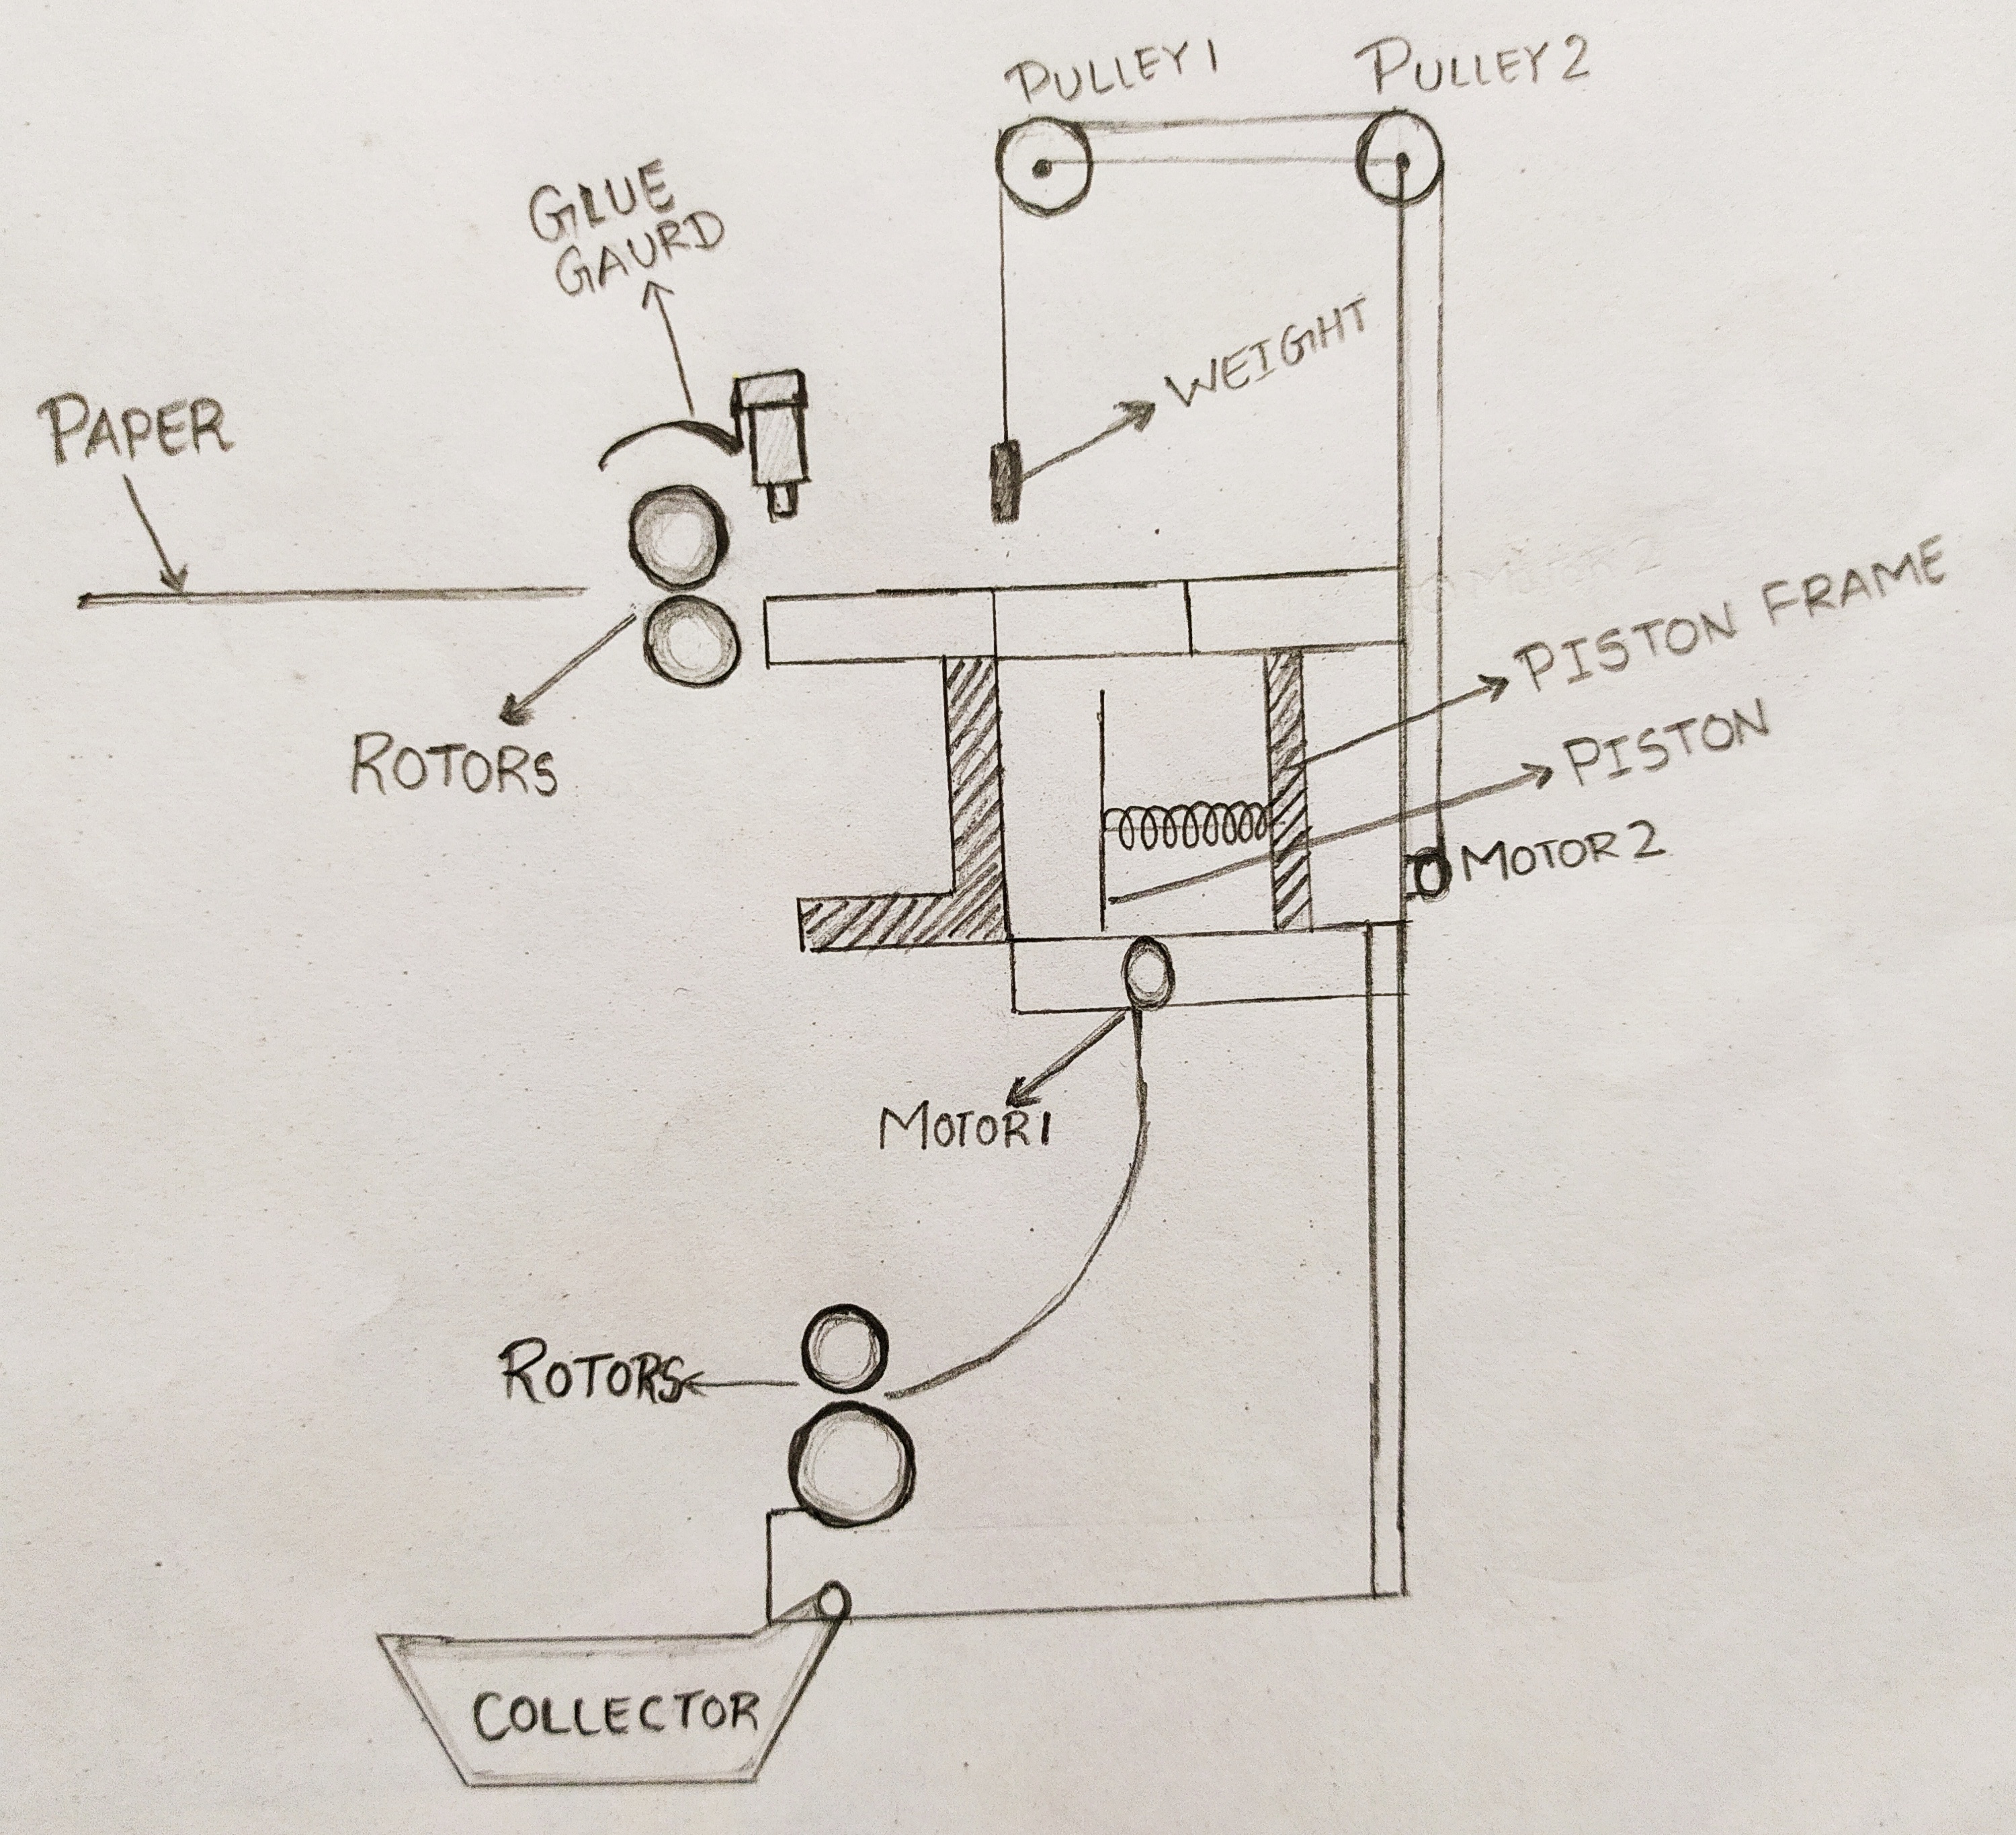 PULLEY 1
PULLEY 2
GLUE
GAURD
WEIGHT
PAPER
PISTON FRAME
ROTORS
PISTON
MOTOR 2
MOTOR 1
ROTORS
COLLECTOR